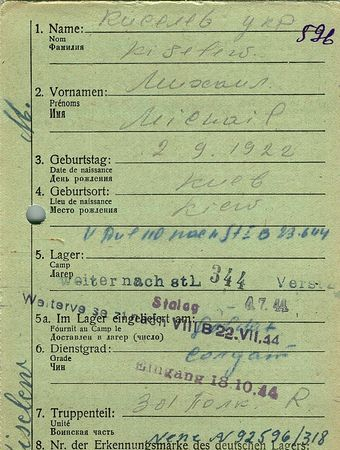 Киселев укр
596
1. Name:
Nom
Фамилия
Kiselew
Михаил
2. Vornamen:
Prénoms
Имя
Michail
3. Geburtstag: 2 9. 1922
Date de naissance
День рождения
4. Geburtsort: Киев
Lieu de naissance
Место рождения
Kiew
5. Lager:
Camp
Лагерь
Weiter nach Stl 344
Stalag 4.7.44
5a. Im Lager eingeliefert am: VIII B 22.VII.44
Fournit au Camp le
Доставлен в лагерь (число)
6. Dienstgrad:
Grade
Чин
Солдат
Eingang 18.10.44
7. Truppenteil: 301 Полк R.
Unité
Воинская часть
N 92596/318
8. Nr. der Erkennungsmarke des deutschen Lagers: